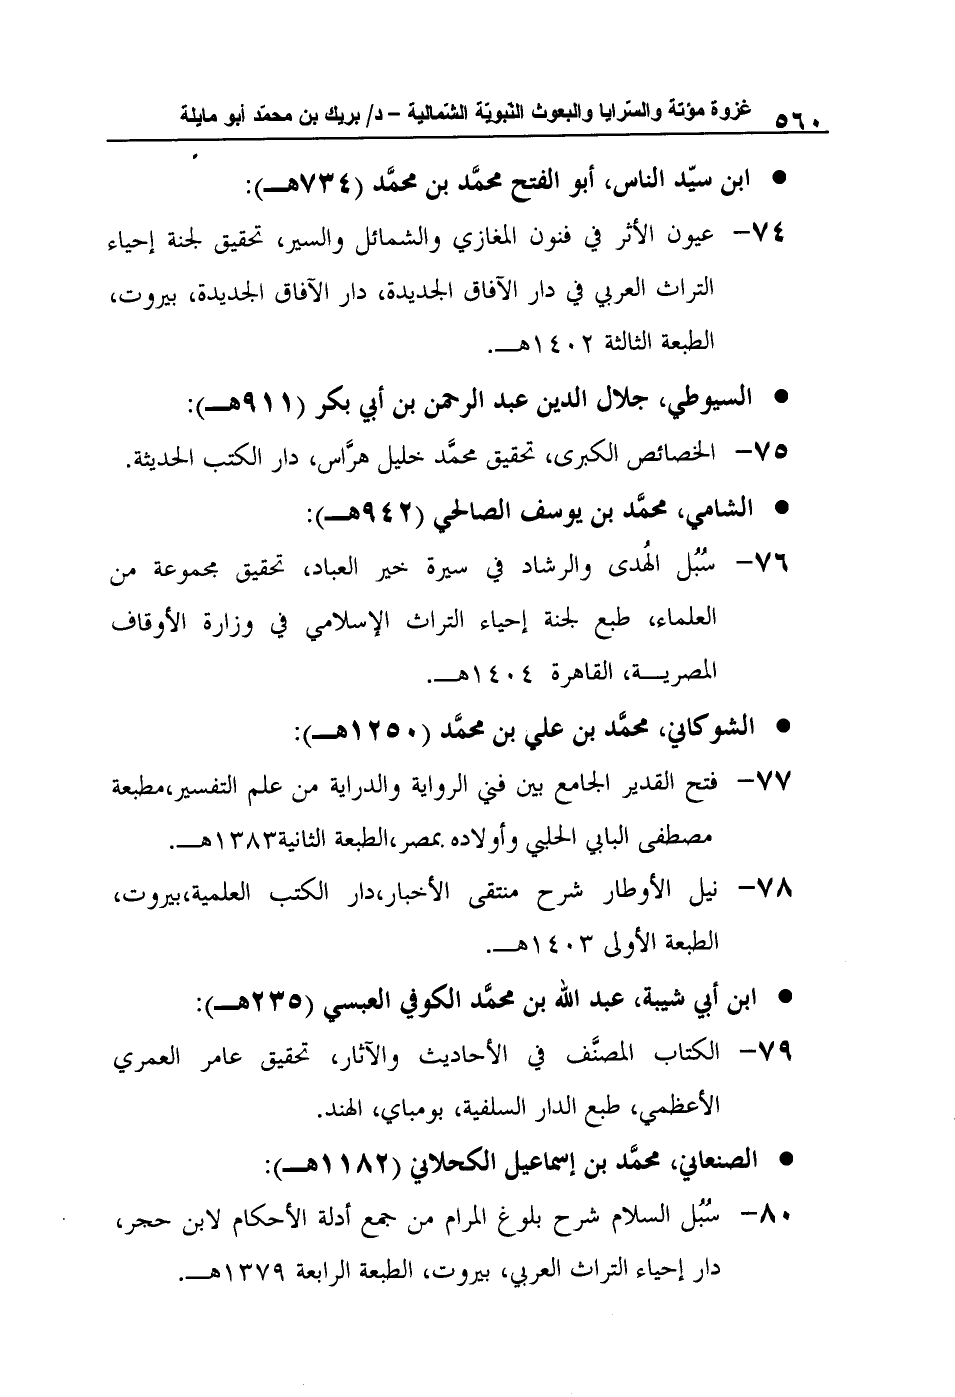 ٥٦٠ غزوة مؤتة والسّرايا والبعوث النّبويّة الشّماليّة – د/ بريك بن محمّد أبو مايلة
● ابن سيّد الناس، أبو الفتح محمَّد بن محمَّد (٧٣٤هــ):
٧٤– عيون الأثر في فنون المغازي والشمائل والسير، تحقيق لجنة إحياء
التراث العربي في دار الآفاق الجديدة، دار الآفاق الجديدة، بيروت،
الطبعة الثالثة ١٤٠٢هــ.
● السيوطي، جلال الدين عبد الرحمن بن أبي بكر (٩١١هــ):
٧٥– الخصائص الكبرى، تحقيق محمَّد خليل هرَّاس، دار الكتب الحديثة.
● الشامي، محمَّد بن يوسف الصالحي (٩٤٢هــ):
٧٦– سُبُل الهُدى والرشاد في سيرة خير العباد، تحقيق مجموعة من
العلماء، طبع لجنة إحياء التراث الإسلامي في وزارة الأوقاف
المصريــة، القاهرة ١٤٠٤هــ.
● الشوكاني، محمَّد بن علي بن محمَّد (١٢٥٠هــ):
٧٧– فتح القدير الجامع بين فني الرواية والدراية من علم التفسير،مطبعة
مصطفى البابي الحلبي وأولاده بمصر،الطبعة الثانية١٣٨٣هــ.
٧٨– نيل الأوطار شرح منتقى الأخبار،دار الكتب العلمية،بيروت،
الطبعة الأولى ١٤٠٣هــ.
● ابن أبي شيبة، عبد الله بن محمَّد الكوفي العبسي (٢٣٥هــ):
٧٩– الكتاب المصنَّف في الأحاديث والآثار، تحقيق عامر العمري
الأعظمي، طبع الدار السلفية، بومباي، الهند.
● الصنعاني، محمَّد بن إسماعيل الكحلاني (١١٨٢هــ):
٨٠– سُبُل السلام شرح بلوغ المرام من جمع أدلة الأحكام لابن حجر،
دار إحياء التراث العربي، بيروت، الطبعة الرابعة ١٣٧٩هــ.